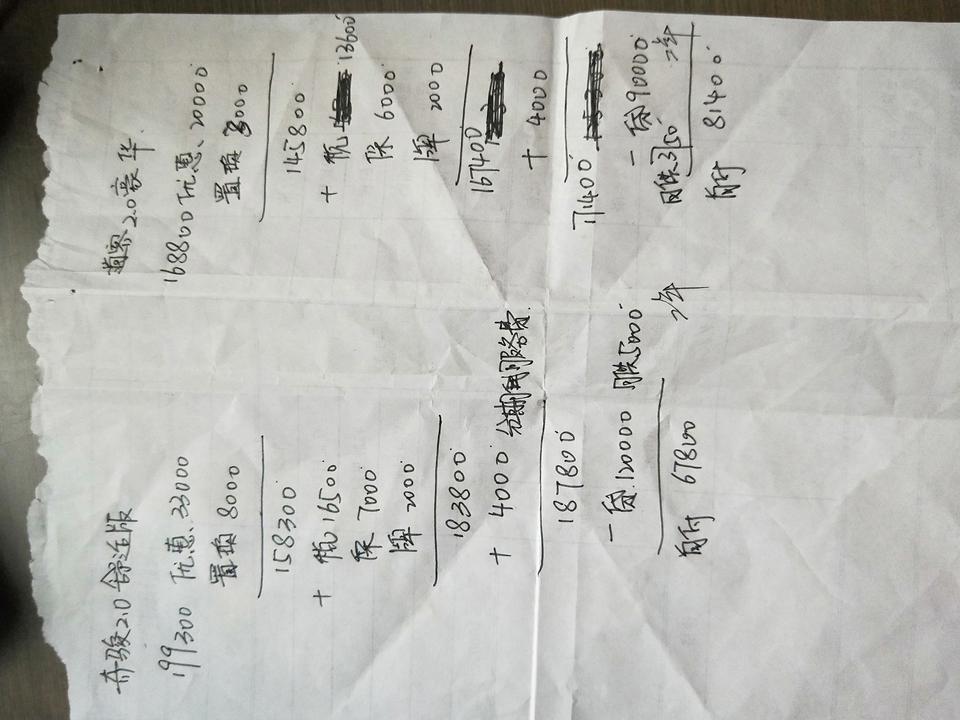 奇骏2.0舒适版
199300 优惠、33000
置换 8000
158300
+ 税 16500
保 7000
牌 2000
183800
+ 4000 分期服务费
187800
一贷 120000 月供5000 2年
首付 67800
2.0豪华
168800优惠、20000
置换 3000
145800
+ 税 13600
保 6000
牌 2000
167400
+ 4000
171400
一贷90000
月供3750 2年
首付 81400